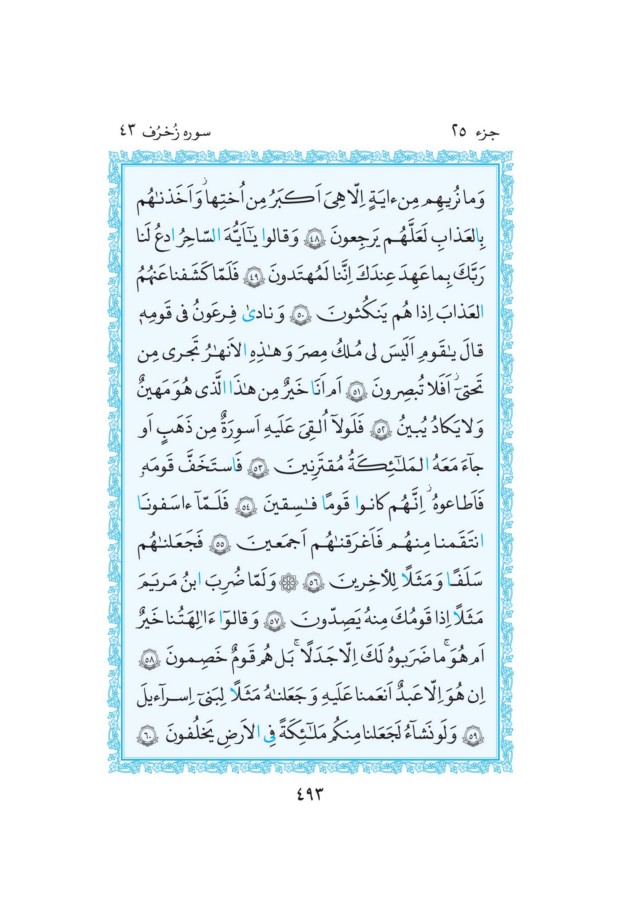 جزء ٢٥
سوره زُخرُف ٤٣
وَما نُريهِم مِن ءايَةٍ اِلّا هِىَ اَكبَرُ مِن اُختِها ۖ وَ اَخَذنٰهُم
بِالعَذابِ لَعَلَّهُم يَرجِعونَ ٤٨ وَ قالوا يٰٓاَيُّهَ السّاحِرُ ادعُ لَنا
رَبَّكَ بِما عَهِدَ عِندَكَ اِنَّنا لَمُهتَدونَ ٤٩ فَلَمّا كَشَفنا عَنهُمُ
العَذابَ اِذا هُم يَنكُثونَ ٥٠ وَ نادىٰ فِرعَونُ فى قَومِهٖ
قالَ يٰقَومِ اَلَيسَ لى مُلكُ مِصرَ وَ هٰذِهِ الاَنهٰرُ تَجرى مِن
تَحتى ۖ اَفَلا تُبصِرونَ ٥١ اَم اَنَا خَيرٌ مِن هٰذَا الَّذى هُوَ مَهينٌ
وَ لا يَكادُ يُبينُ ٥٢ فَلَولآ اُلقِىَ عَلَيهِ اَسوِرَةٌ مِن ذَهَبٍ اَو
جآءَ مَعَهُ المَلٰٓئِكَةُ مُقتَرِنينَ ٥٣ فَاستَخَفَّ قَومَهٗ
فَاَطاعوهُ ۚ اِنَّهُم كانوا قَومًا فٰسِقينَ ٥٤ فَلَمّآ ءاسَفونَا
انتَقَمنا مِنهُم فَاَغرَقنٰهُم اَجمَعينَ ٥٥ فَجَعَلنٰهُم
سَلَفًا وَ مَثَلًا لِلأٰخِرينَ ٥٦ ۞ وَ لَمّا ضُرِبَ ابنُ مَريَمَ
مَثَلًا اِذا قَومُكَ مِنهُ يَصِدّونَ ٥٧ وَ قالوٓا ءَاٰلِهَتُنا خَيرٌ
اَم هُوَ ۚ ما ضَرَبوهُ لَكَ اِلّا جَدَلًا ۚ بَل هُم قَومٌ خَصِمونَ ٥٨
اِن هُوَ اِلّا عَبدٌ اَنعَمنا عَلَيهِ وَ جَعَلنٰهُ مَثَلًا لِبَنىٓ اِسرآءيلَ
٥٩ وَ لَو نَشآءُ لَجَعَلنا مِنكُم مَلٰٓئِكَةً فِى الاَرضِ يَخلُفونَ ٦٠
٤٩٣